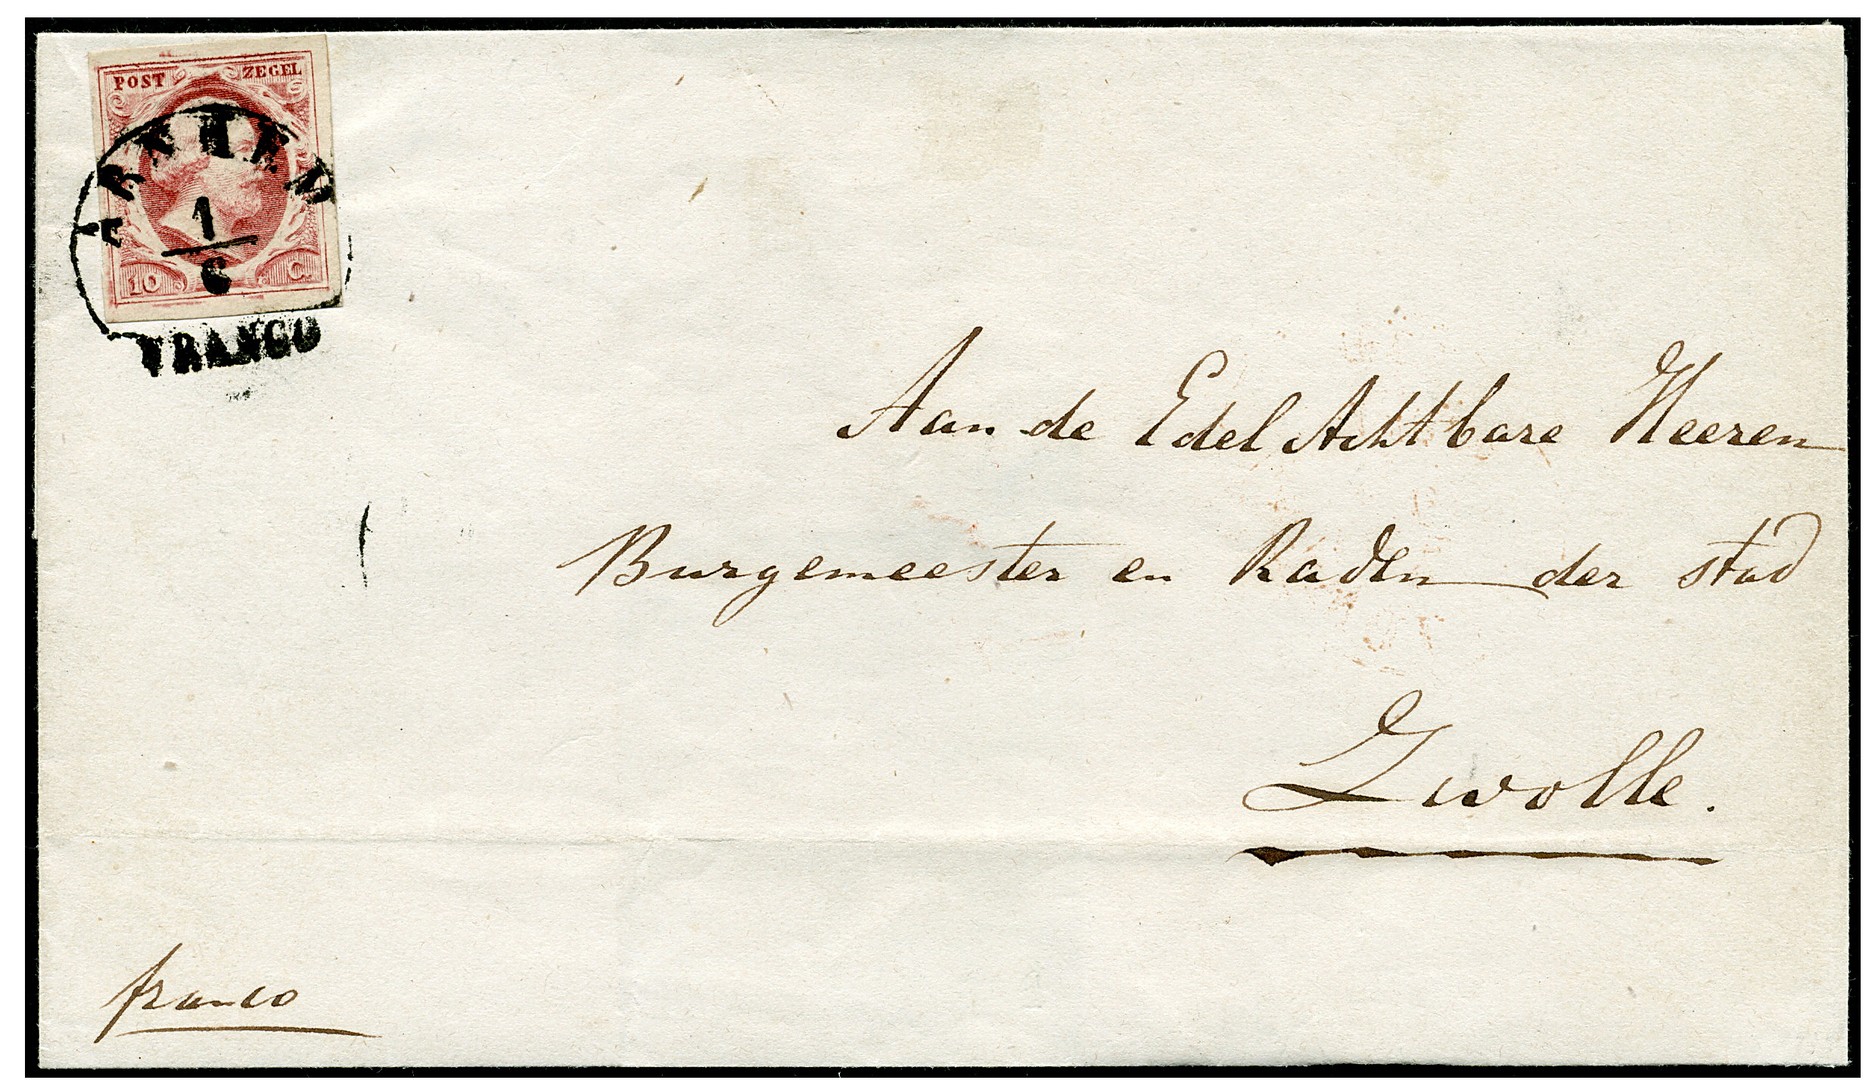 POST ZEGEL
ARNHEM
1
6
10 C.
FRANCO
Aan de Edel Achtbare Heeren
Burgemeester en Raden der stad
Zwolle.
franco